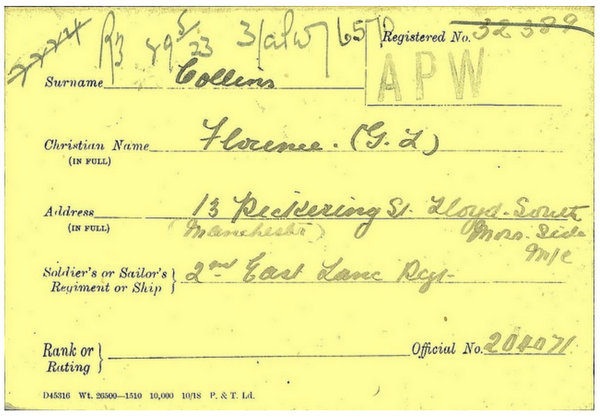 R3 895/23 3/APW/6570 Registered No. 32389
APW
Surname Collins
Christian Name Florence. (G. L)
(IN FULL)
Address 13 Pickering St. Lloyd. South
(IN FULL) (Manchester) Moss Side
M/c
Soldier's or Sailor's } 2nd East Lanc Regt.
Regiment or Ship
Rank or } Official No. 204071
Rating
D45316 Wt. 26500—1510 10,000 10/18 P. & T. Ld.